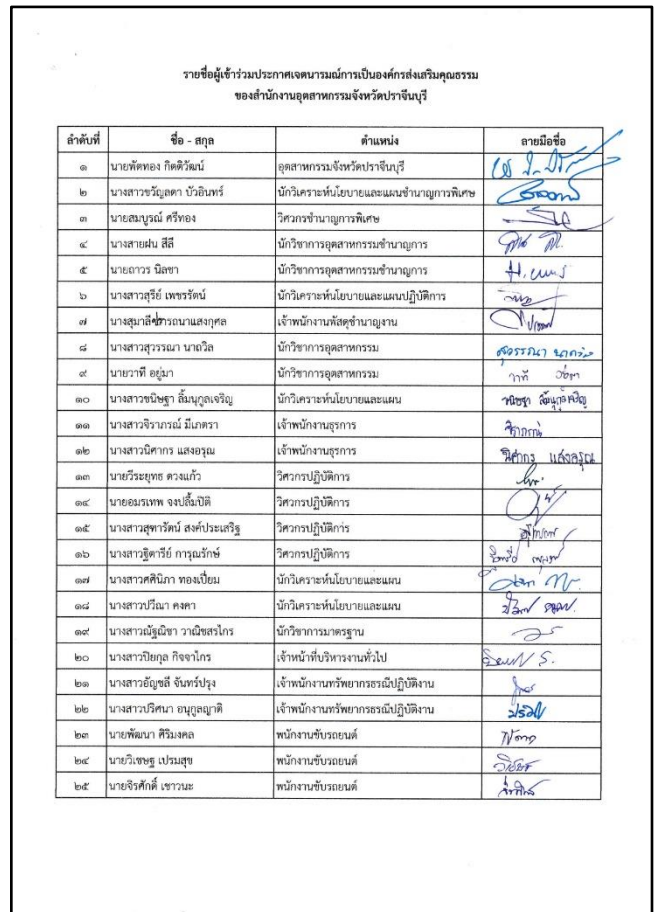 รายชื่อผู้เข้าร่วมประกาศเจตนารมณ์การเป็นองค์กรส่งเสริมคุณธรรม
ของสำนักงานอุตสาหกรรมจังหวัดปราจีนบุรี
ลำดับที่ ชื่อ - สกุล ตำแหน่ง ลายมือชื่อ
๑ นายพัดทอง กิตติวัฒน์ อุตสาหกรรมจังหวัดปราจีนบุรี
๒ นางสาวขวัญลดา บัวอินทร์ นักวิเคราะห์นโยบายและแผนชำนาญการพิเศษ
๓ นายสมบูรณ์ ศรีทอง วิศวกรชำนาญการพิเศษ
๔ นางสายฝน สีลี นักวิชาการอุตสาหกรรมชำนาญการ
๕ นายถาวร นิลชา นักวิชาการอุตสาหกรรมชำนาญการ
๖ นางสาวสุรีย์ เพชรรัตน์ นักวิเคราะห์นโยบายและแผนปฏิบัติการ
๗ นางสุมาลี เจ้าพนักงานพัสดุชำนาญงาน
๘ นางสาวสุวรรณา นาถวิล นักวิชาการอุตสาหกรรม สุวรรณา นาถวิล
๙ นายวาที อยู่มา นักวิชาการอุตสาหกรรม วาที อยู่มา
๑๐ นางสาวขนิษฐา ลิ้มนุกูลเจริญ นักวิเคราะห์นโยบายและแผน ขนิษฐา ลิ้มนุกูลเจริญ
๑๑ นางสาวจิราภรณ์ มีเภตรา เจ้าพนักงานธุรการ จิราภรณ์
๑๒ นางสาวนิศากร แสงอรุณ เจ้าพนักงานธุรการ นิศากร แสงอรุณ
๑๓ นายวีระยุทธ ดวงแก้ว วิศวกรปฏิบัติการ
๑๔ นายอมรเทพ จงปลื้มปิติ วิศวกรปฏิบัติการ
๑๕ นางสาวสุฑารัตน์ สงค์ประเสริฐ วิศวกรปฏิบัติการ
๑๖ นางสาวฐิตารีย์ การุณรักษ์ วิศวกรปฏิบัติการ
๑๗ นางสาวศศินิภา ทองเปี่ยม นักวิเคราะห์นโยบายและแผน
๑๘ นางสาวปวีณา คงคา นักวิเคราะห์นโยบายและแผน
๑๙ นางสาวณัฐณิชา วาณิชสรไกร นักวิชาการมาตรฐาน
๒๐ นางสาวปิยกุล กิจจาไกร เจ้าหน้าที่บริหารงานทั่วไป
๒๑ นางสาวอัญชลี จันทร์ปรุง เจ้าพนักงานทรัพยากรธรณีปฏิบัติงาน
๒๒ นางสาวปริศนา อนุกูลญาติ เจ้าพนักงานทรัพยากรธรณีปฏิบัติงาน
๒๓ นายพัฒนา ศิริมงคล พนักงานขับรถยนต์
๒๔ นายวิเชษฐ เปรมสุข พนักงานขับรถยนต์
๒๕ นายจิรศักดิ์ เชาวนะ พนักงานขับรถยนต์